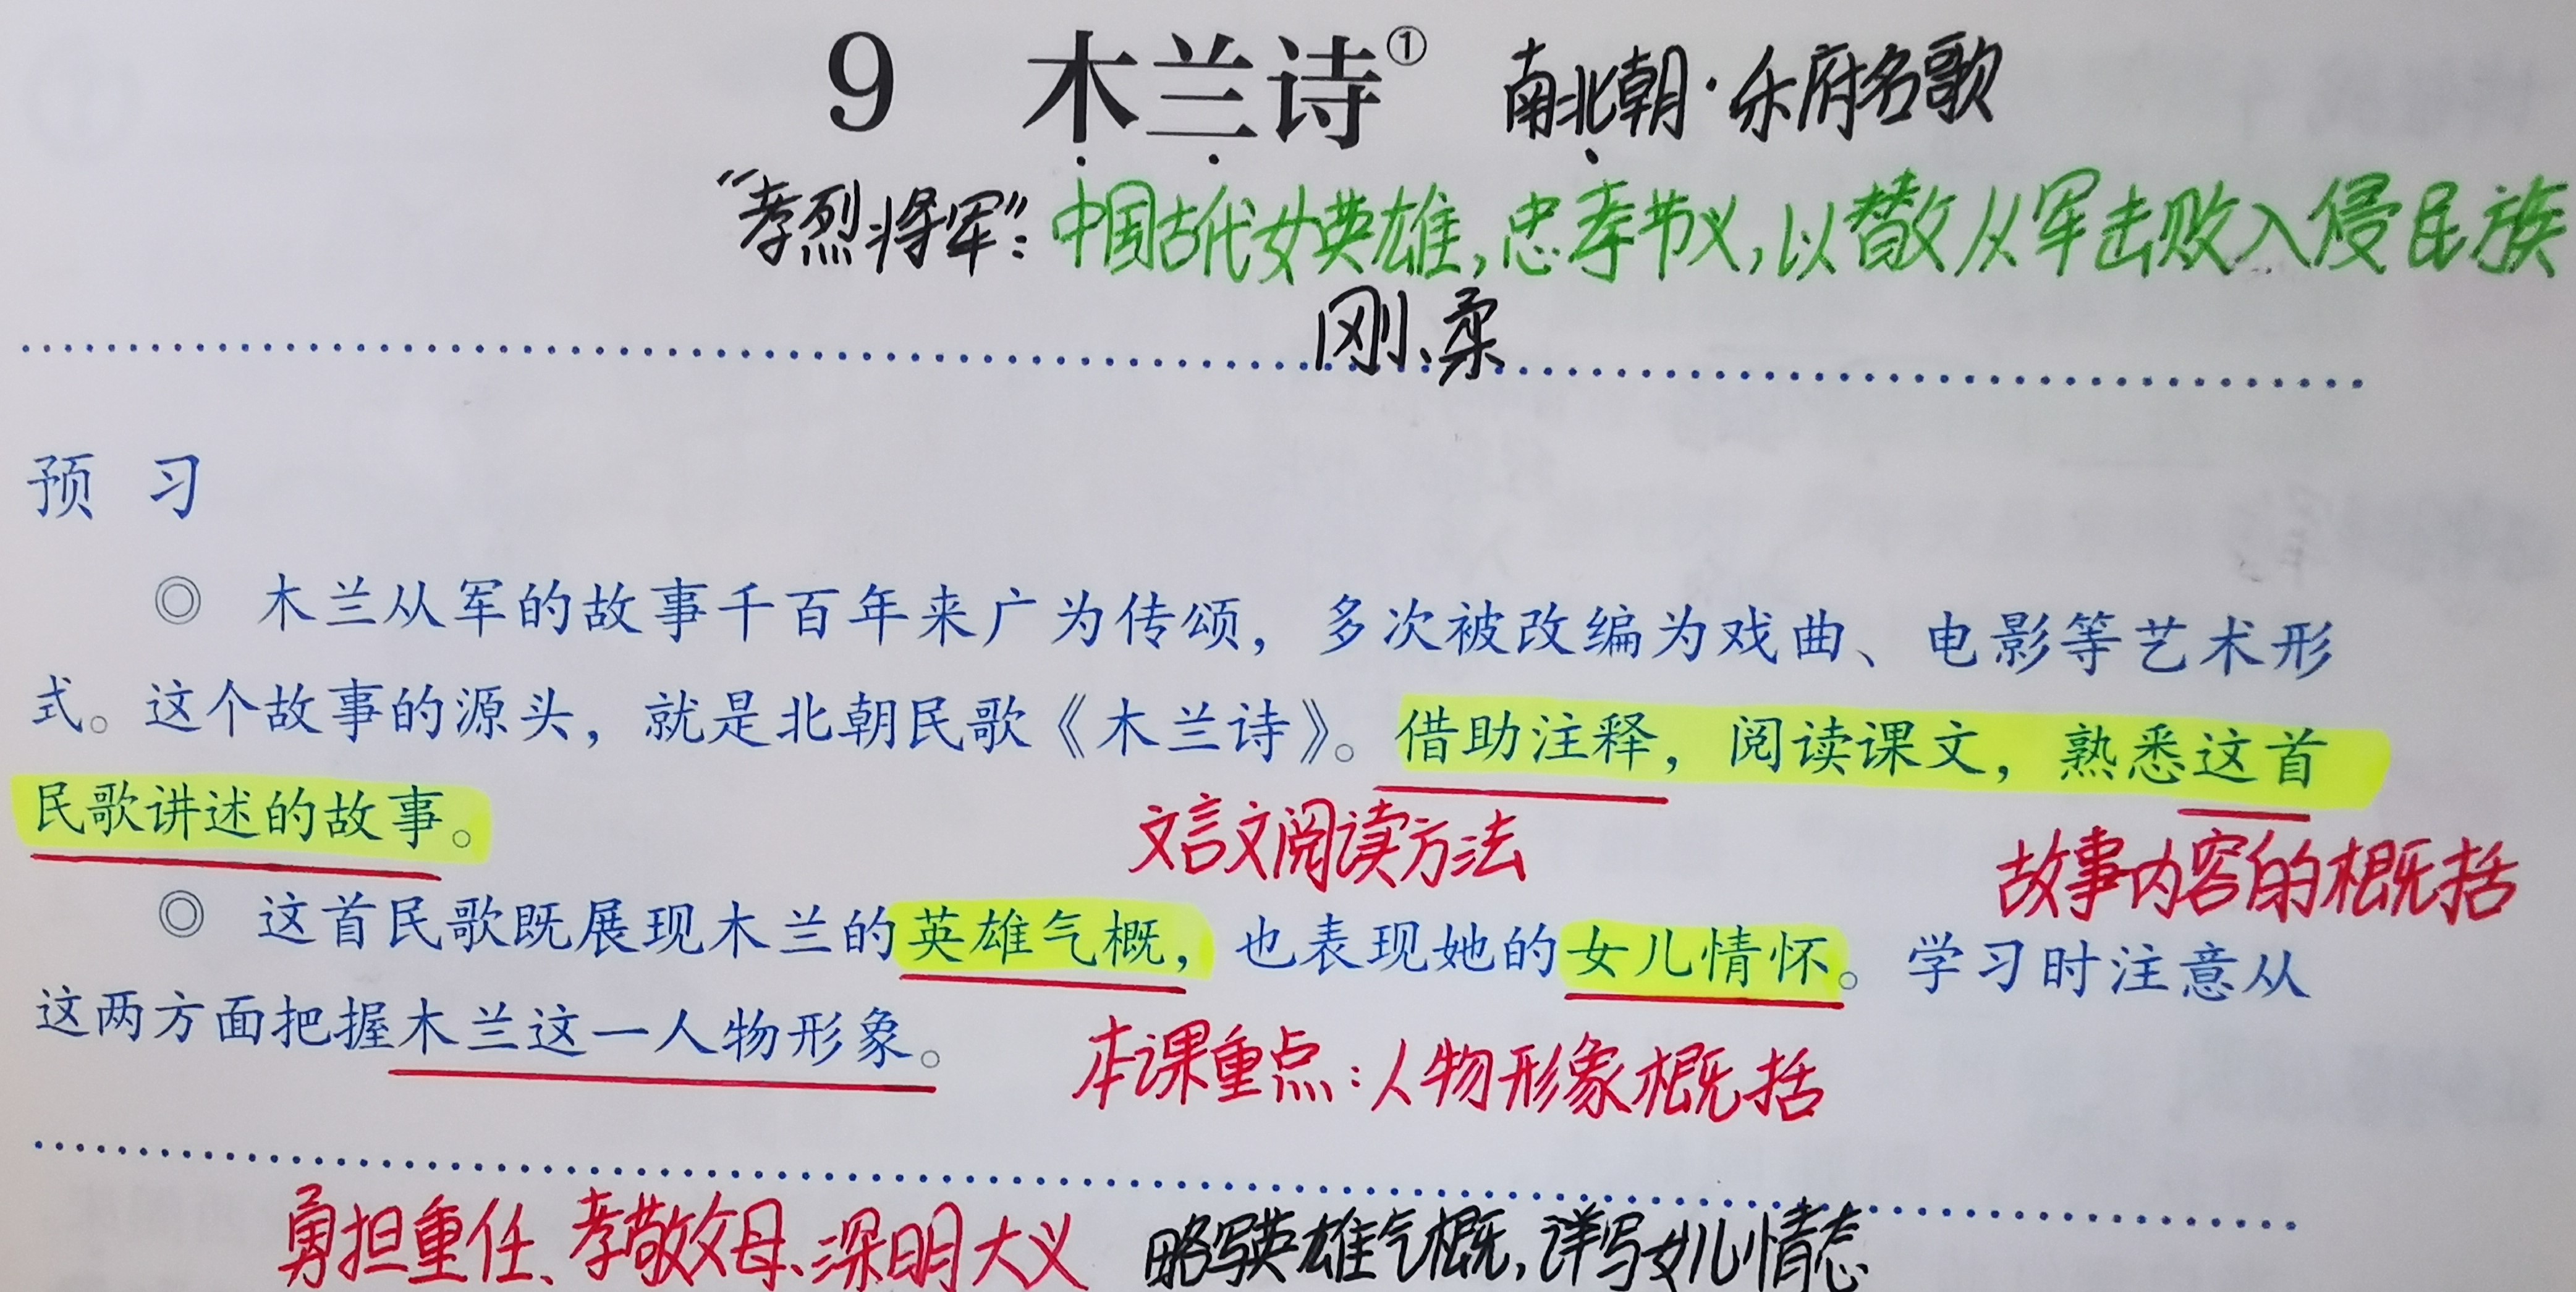 9 木兰诗① 南北朝·乐府名歌
“孝烈将军”：中国古代女英雄，忠孝节义，以替父从军击败入侵民族
刚、柔
预 习
◎ 木兰从军的故事千百年来广为传颂，多次被改编为戏曲、电影等艺术形
式。这个故事的源头，就是北朝民歌《木兰诗》。借助注释，阅读课文，熟悉这首
民歌讲述的故事。
文言文阅读方法
故事内容的概括
◎ 这首民歌既展现木兰的英雄气概，也表现她的女儿情怀。学习时注意从
这两方面把握木兰这一人物形象。
本课重点：人物形象概括
勇担重任、孝敬父母、深明大义 略写英雄气概，详写女儿情态